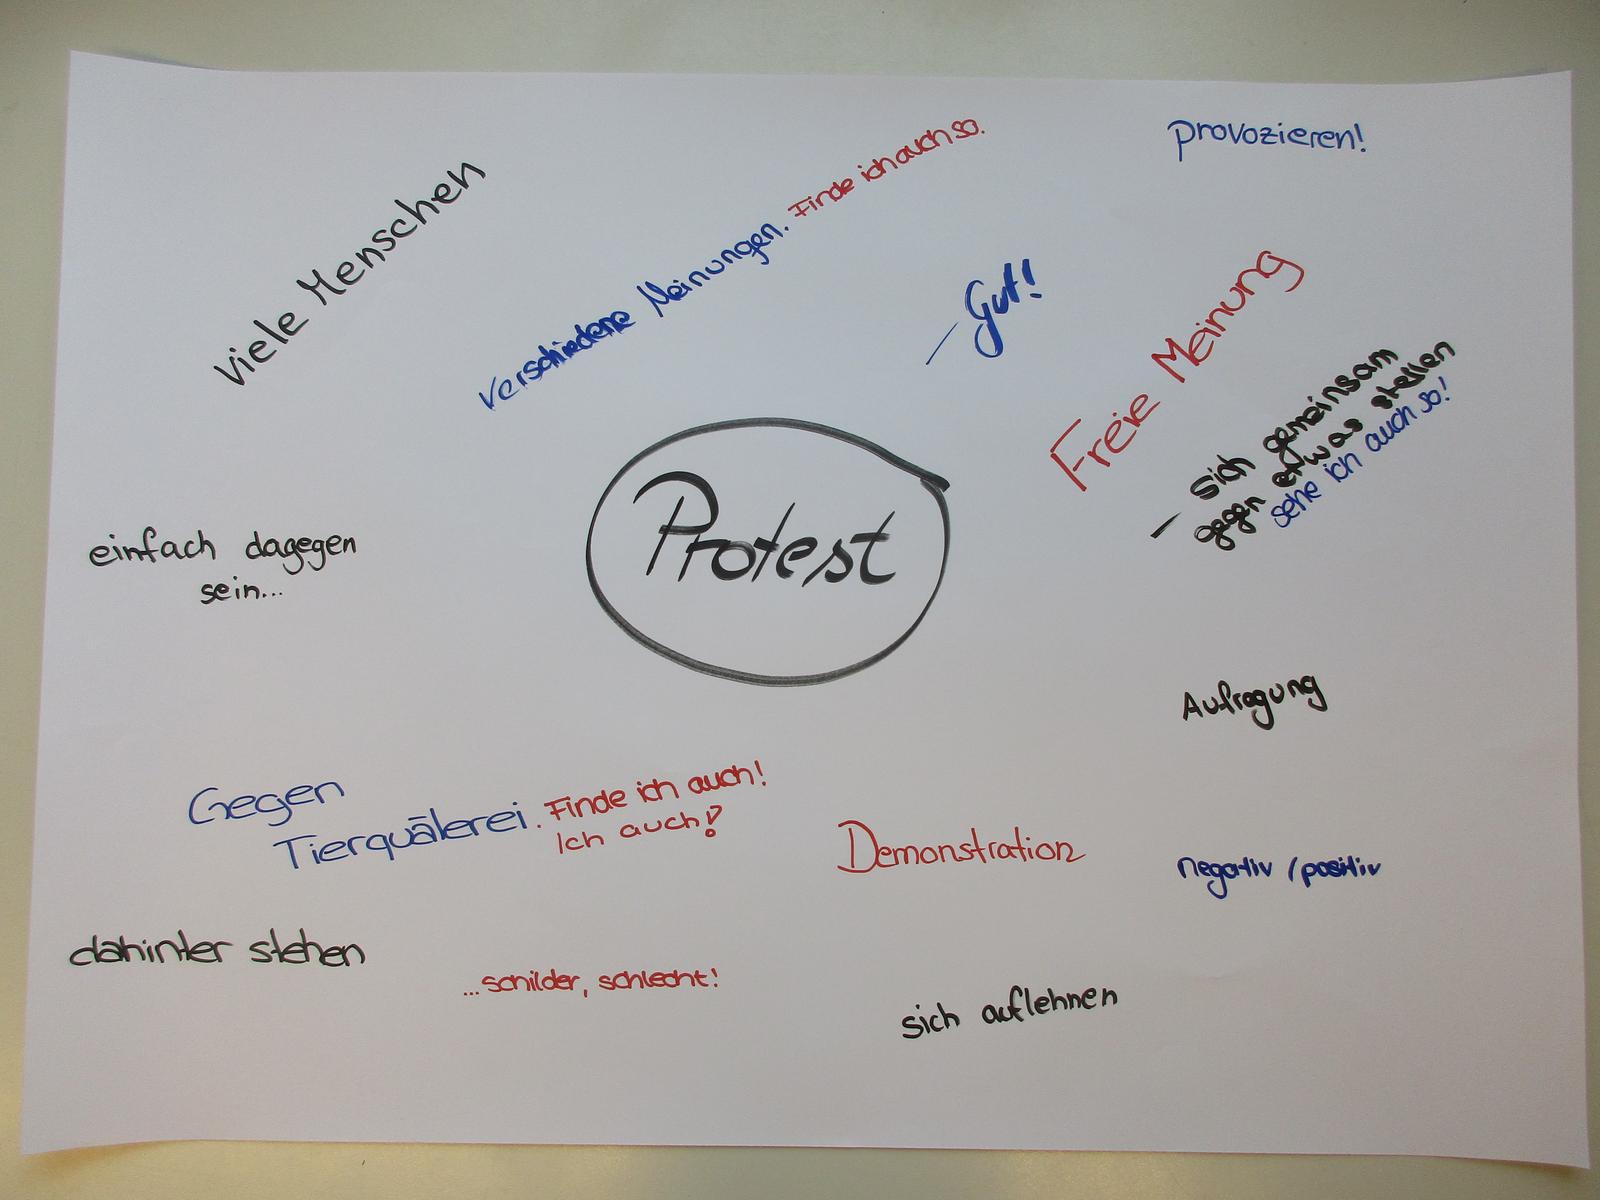 Viele Menschen
verschiedene Meinungen. Finde ich auch so.
provozieren!
– Gut!
Freie Meinung
– sich gemeinsam
gegen etwas stellen
sehe ich auch so!
Protest
einfach dagegen
sein...
Aufregung
Gegen
Tierquälerei. Finde ich auch!
Ich auch!
Demonstration
negativ / positiv
dahinter stehen
...schilder, schlecht!
sich auflehnen